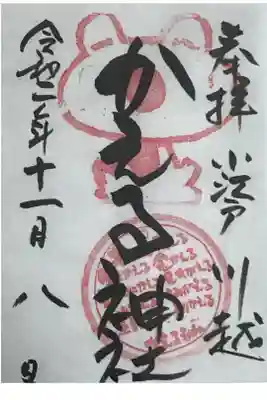 奉拝
小江戸川越
かえる神社
令和二年十一月八日